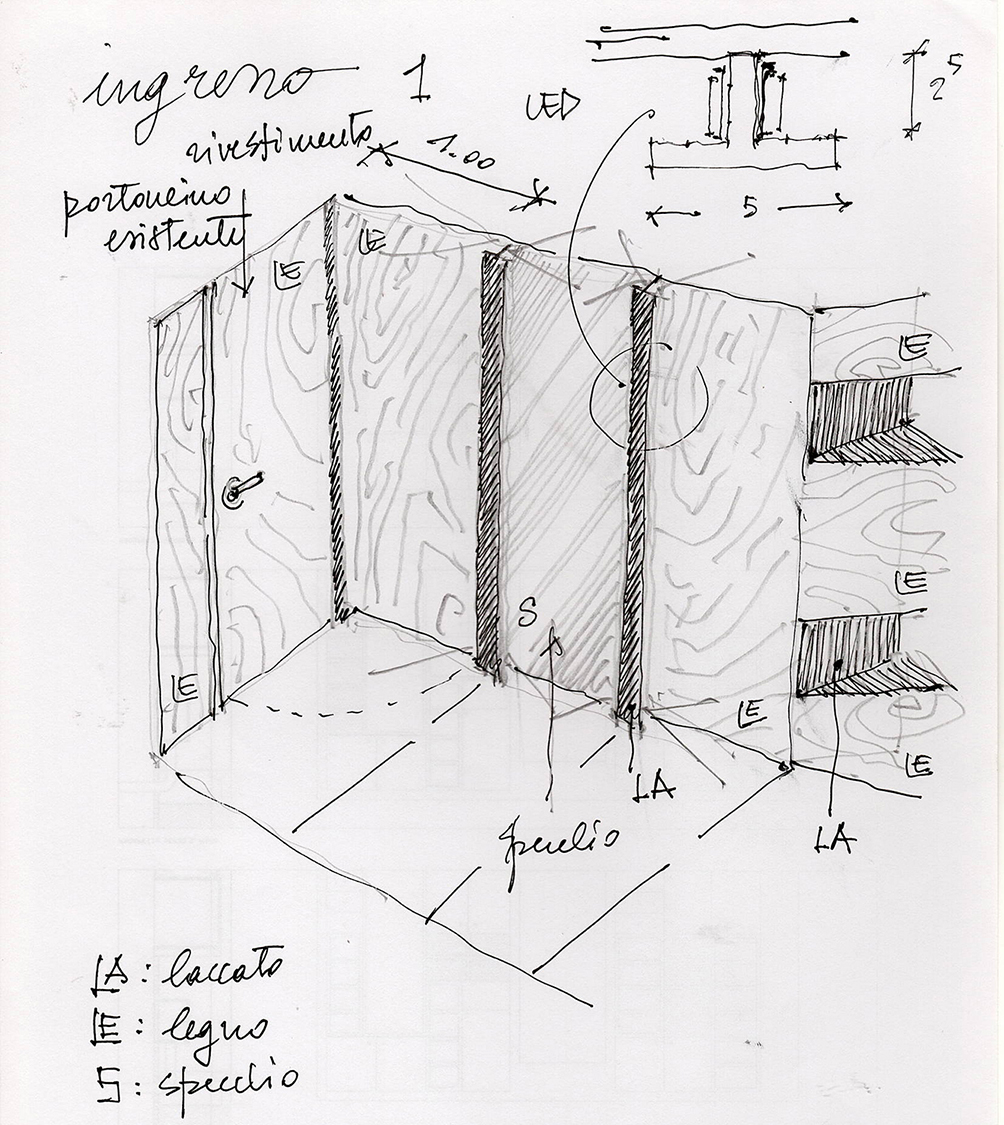 ingresso 1
LED
2⁵
5
rivestimento
portoncino
esistente
1.00
LE
LE
LE
LE
S
LE
LE
LE
LA
specchio
LA
LA: laccato
LE: legno
S: specchio